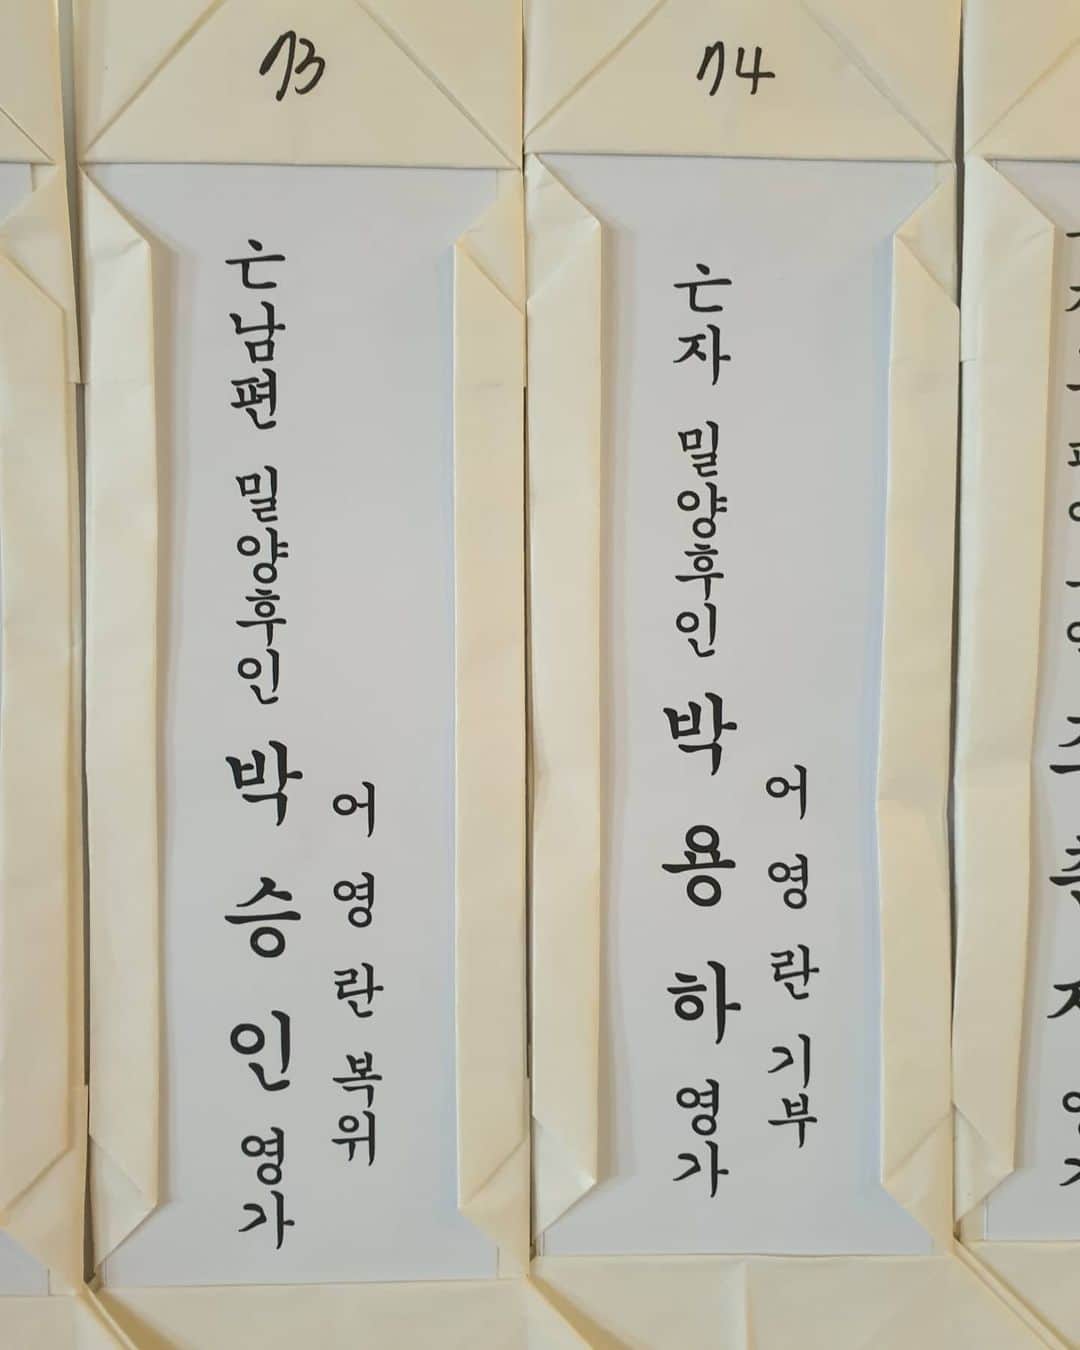 73
亡남편 밀양후인 박 승 인 영가
어 영 란 복위
74
亡자 밀양후인 박 용 하 영가
어 영 란 기부